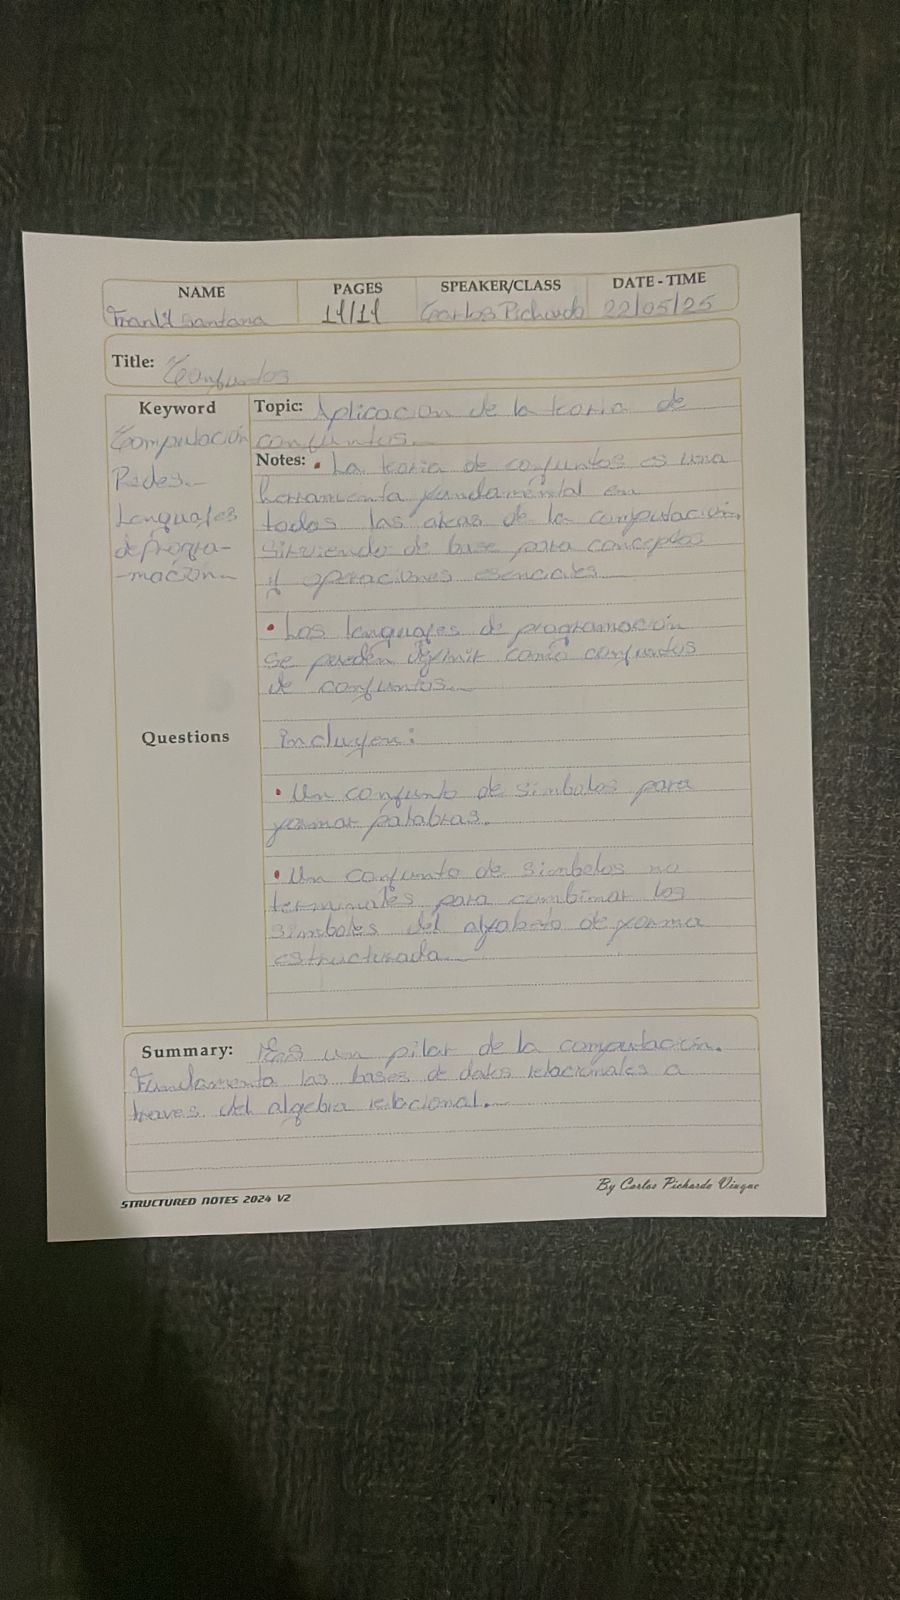 NAME PAGES SPEAKER/CLASS DATE - TIME
Santana 11/11 Carlos Pichardo 22/05/25
Title: Conjuntos
Keyword
Computación
Redes.
Lenguajes
de progra-
-mación.
Topic: Aplicacion de la teoria de
conjuntos.
Notes: • La teoria de conjuntos es una
herramienta fundamental en
todas las areas de la computación.
Sirviendo de base para conceptos
y operaciones esenciales.
• Los lenguajes de programación
se pueden definir como conjuntos
de conjuntos.
Questions
Incluyen:
• Un conjunto de simbolos para
formar palabras.
• Un conjunto de simbolos no
terminales para combinar los
simbolos del alfabeto de forma
estructurada.
Summary: Es un pilar de la computación.
Fundamenta las bases de datos relacionales a
traves del algebra relacional.
STRUCTURED NOTES 2024 V2
By Carlos Pichardo Viuque